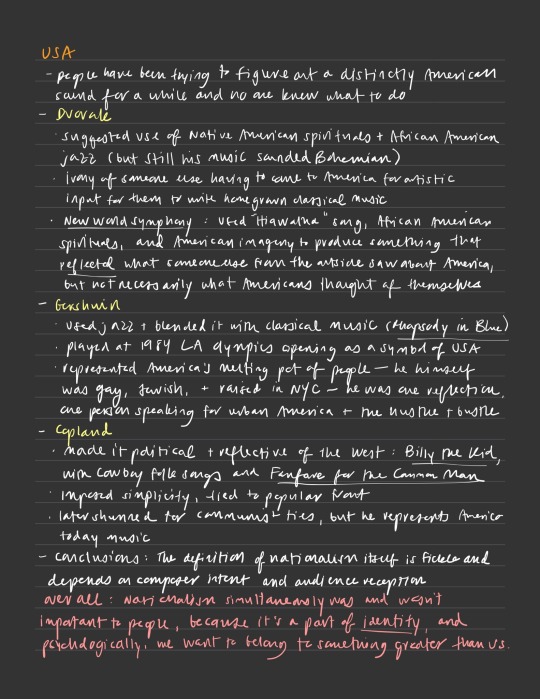 USA
- people have been trying to figure out a distinctly American
sound for a while and no one knew what to do
- Dvorak
· suggested use of Native American spirituals + African American
jazz (but still his music sounded Bohemian)
· irony of someone else having to come to America for artistic
input for them to write homegrown classical music
· New World Symphony : used "Hiawatha" song, African American
spirituals, and American imagery to produce something that
reflected what someone else from the outside saw about America,
but not necessarily what Americans thought of themselves
- Gershwin
· used jazz + blended it with classical music (Rhapsody in Blue)
· played at 1984 LA Olympics opening as a symbol of USA
· represented America's melting pot of people — he himself
was gay, Jewish, + raised in NYC — he was one reflection,
one person speaking for urban America + the hustle + bustle
- Copland
· made it political + reflective of the West : Billy the Kid,
with cowboy folk songs and Fanfare for the Common Man
· imposed simplicity, tied to popular front
· later shunned for communist ties, but he represents America
today music
- conclusions : The definition of nationalism itself is fickle and
depends on composer intent and audience reception
overall : nationalism simultaneously was and wasn't
important to people, because it's a part of identity, and
psychologically, we want to belong to something greater than us.